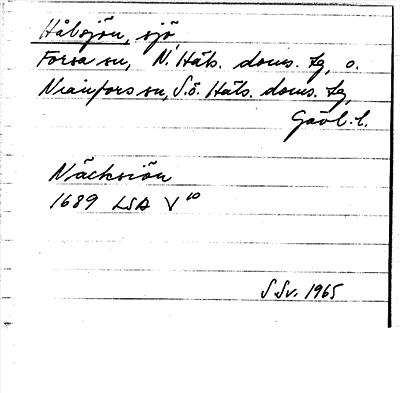 Hålsjön, sjö
Forsa sn, N. Häls. doms. tg, o.
Nianfors sn, S.ö. Häls. doms. tg,
Gävl. l.
Näcksiön
1689 LSA V¹⁰
S Sv. 1965